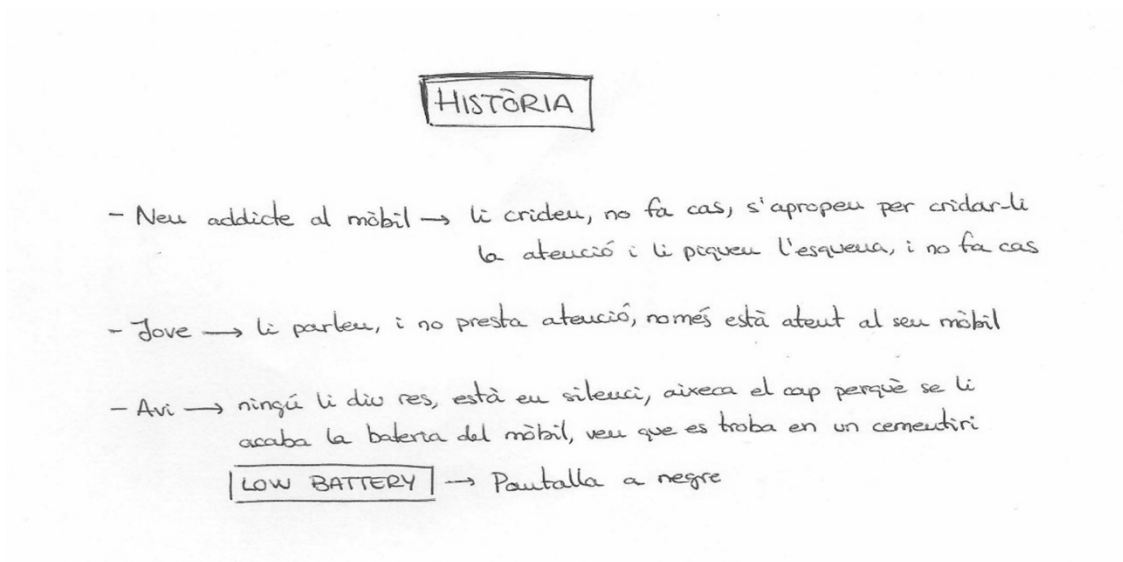 HISTÒRIA
- Neu addicte al mòbil → li criden, no fa cas, s'apropen per cridar-li
la atenció i li piquen l'esquena, i no fa cas
- Jove → li parlen, i no presta atenció, només està atent al seu mòbil
- Avi → ningú li diu res, està en silenci, aixeca el cap perquè se li
acaba la bateria del mòbil, veu que es troba en un cementiri
LOW BATTERY → Pantalla a negre